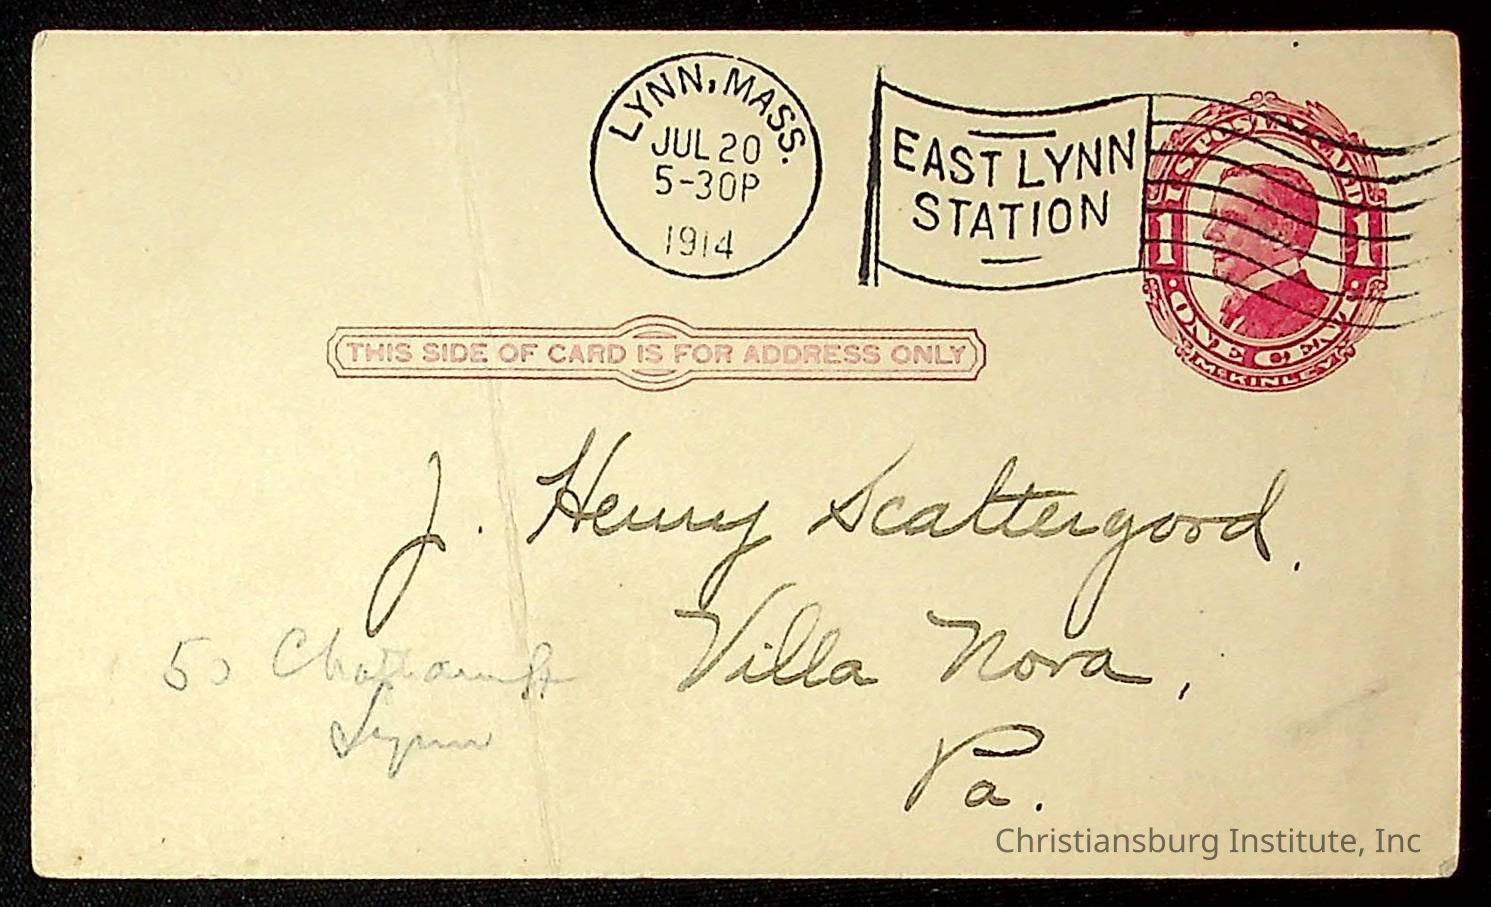 LYNN, MASS.
JUL 20
5-30P
1914
EAST LYNN
STATION
U.S. POSTAL CARD
1 1
ONE CENT
McKINLEY
THIS SIDE OF CARD IS FOR ADDRESS ONLY
J. Henry Scattergood.
Villa Nova,
Pa.
Lynn
Christiansburg Institute, Inc